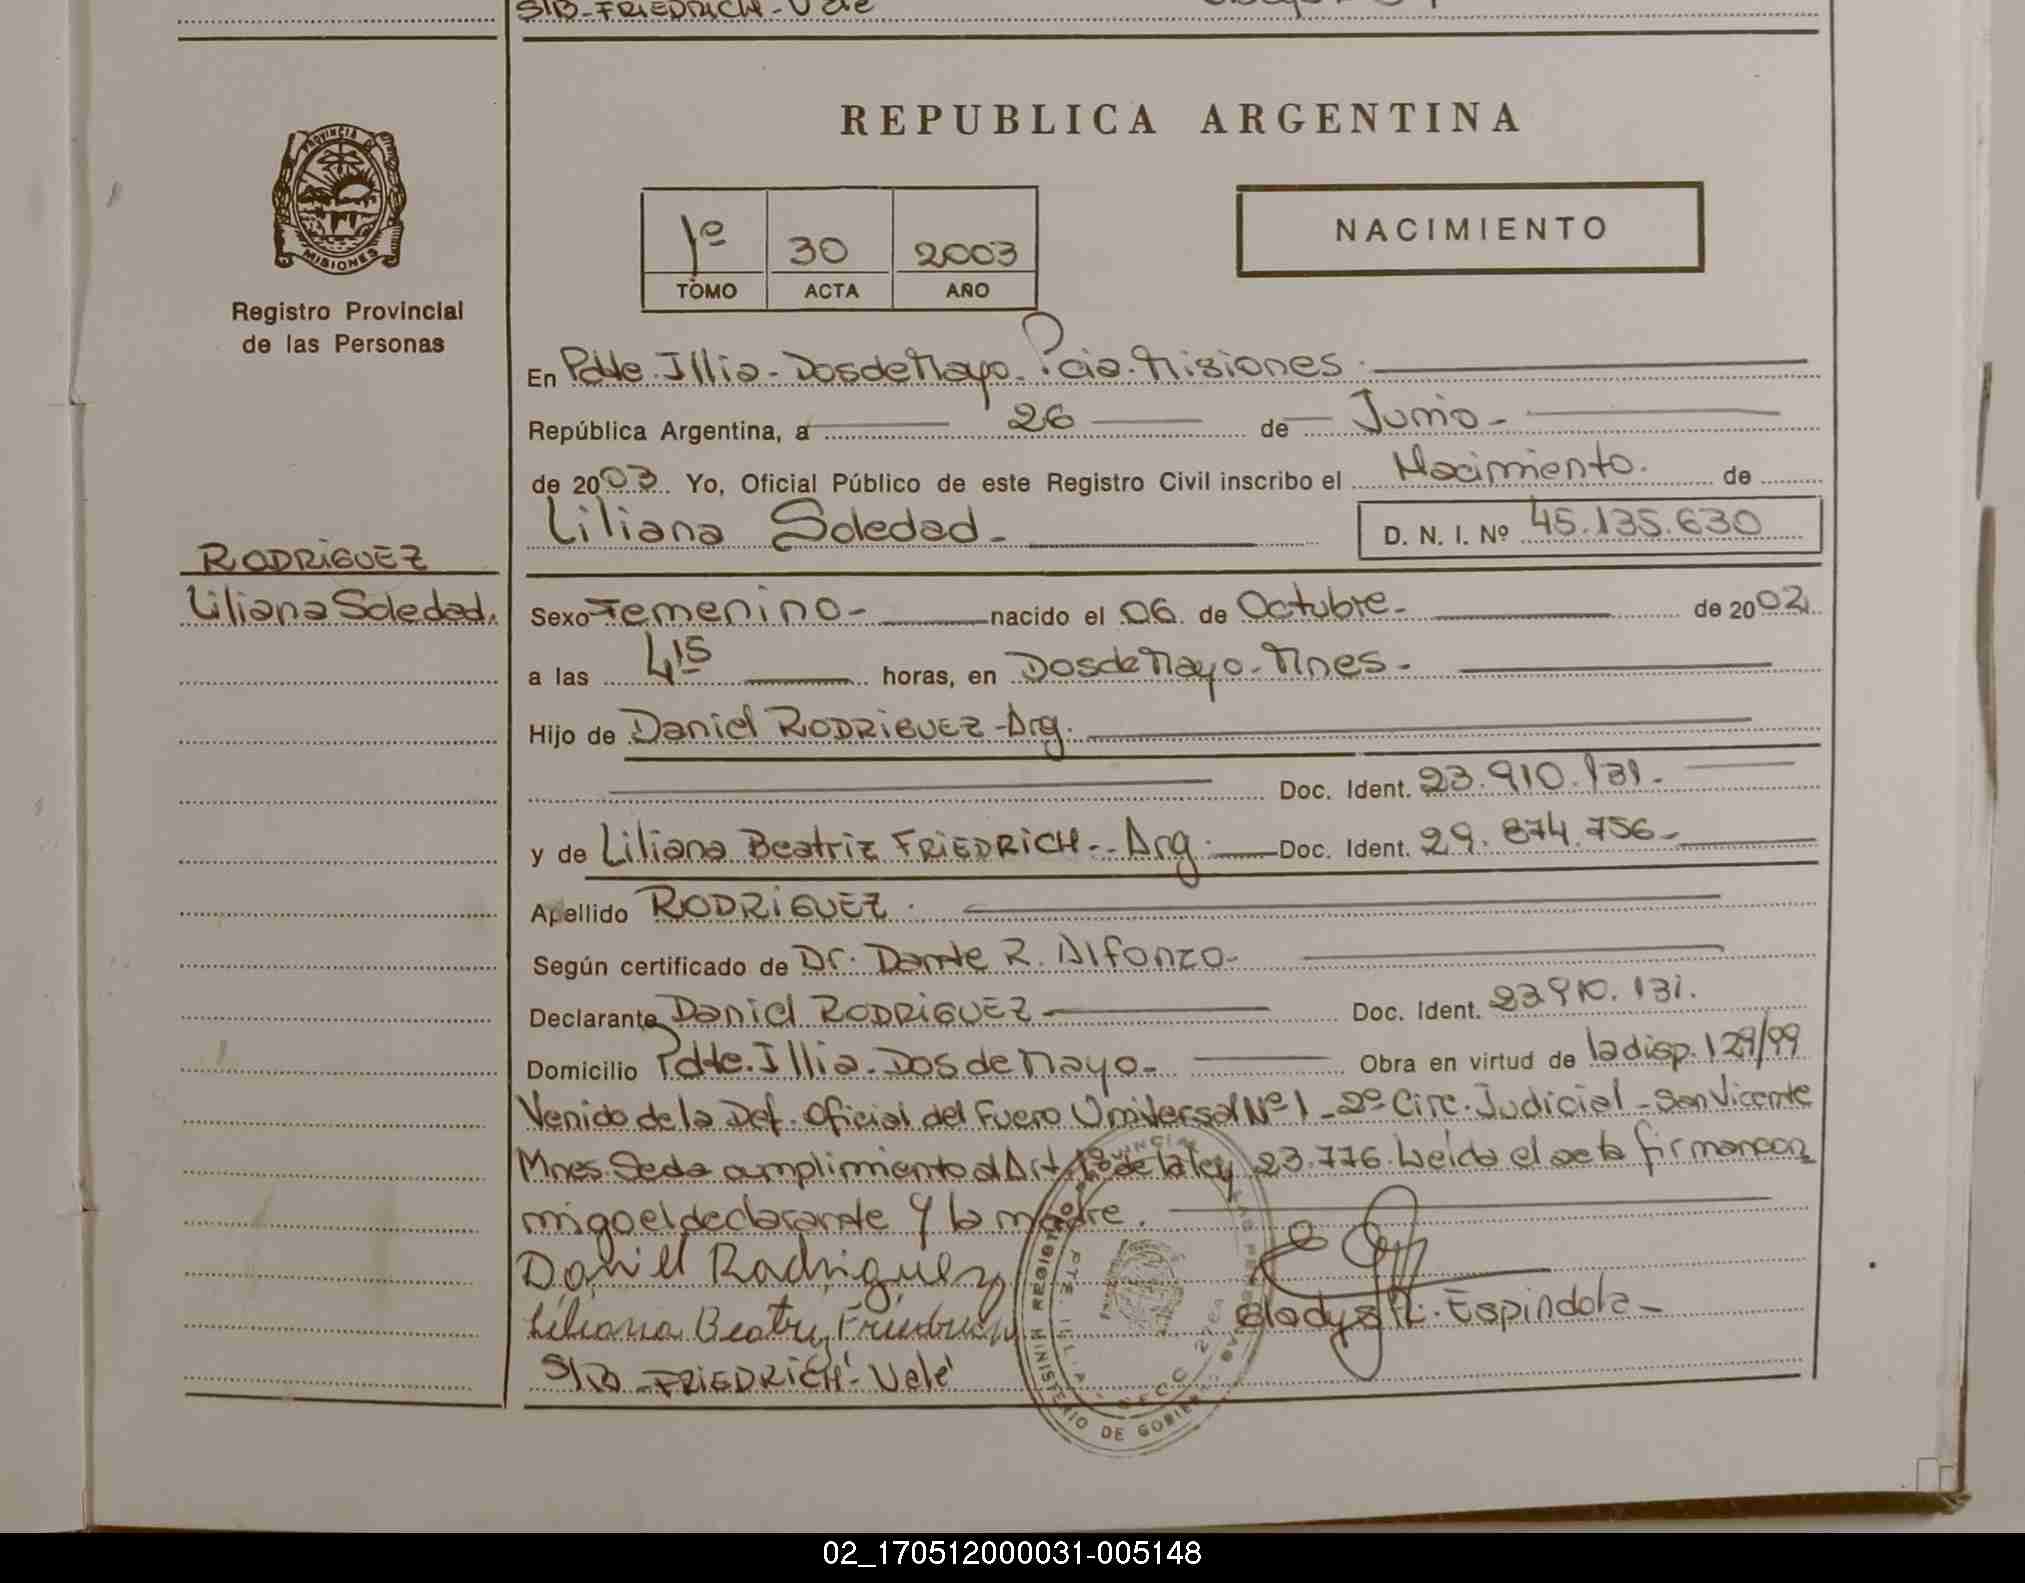 S/B-FRIEDRICH-Vale
PROVINCIA DE
MISIONES
Registro Provincial
de las Personas
RODRIGUEZ
Liliana Soledad.
REPUBLICA ARGENTINA
1º 30 2003
TOMO ACTA AÑO
NACIMIENTO
En Pdte. Illia-Dos de Mayo. Pcia. Misiones.
República Argentina, a 26 de Junio-
de 2003. Yo, Oficial Público de este Registro Civil inscribo el Nacimiento. de
Liliana Soledad- D. N. I. Nº 45.135.630
Sexo Femenino- nacido el 06 de Octubre- de 2002
a las 4 15 horas, en Dos de Mayo-Mnes-
Hijo de Daniel RODRIGUEZ-Arg.
Doc. Ident. 23.910.131-
y de Liliana Beatriz FRIEDRICH-Arg. Doc. Ident. 29.874.756-
Apellido RODRIGUEZ.
Según certificado de Dr. Dante R. Alfonzo-
Declarante Daniel RODRIGUEZ Doc. Ident. 23910.131.
Domicilio Pdte. Illia-Dos de Mayo- Obra en virtud de la disp. 129/99
Venido de la Def. Oficial del Fuero Universal Nº1-2º Circ. Judicial-San Vicente
Mnes. Se da cumplimiento al Art de la ley 23.776. Leida el acta firman con
migo el declarante y la madre.
Daniel Rodriguez
Liliana Beatriz Friedrich
S/B-FRIEDRICH-Vale
Gladys R. Espindola-
MINISTERIO DE GOBIERNO
PTE. ILLIA
02_170512000031-005148